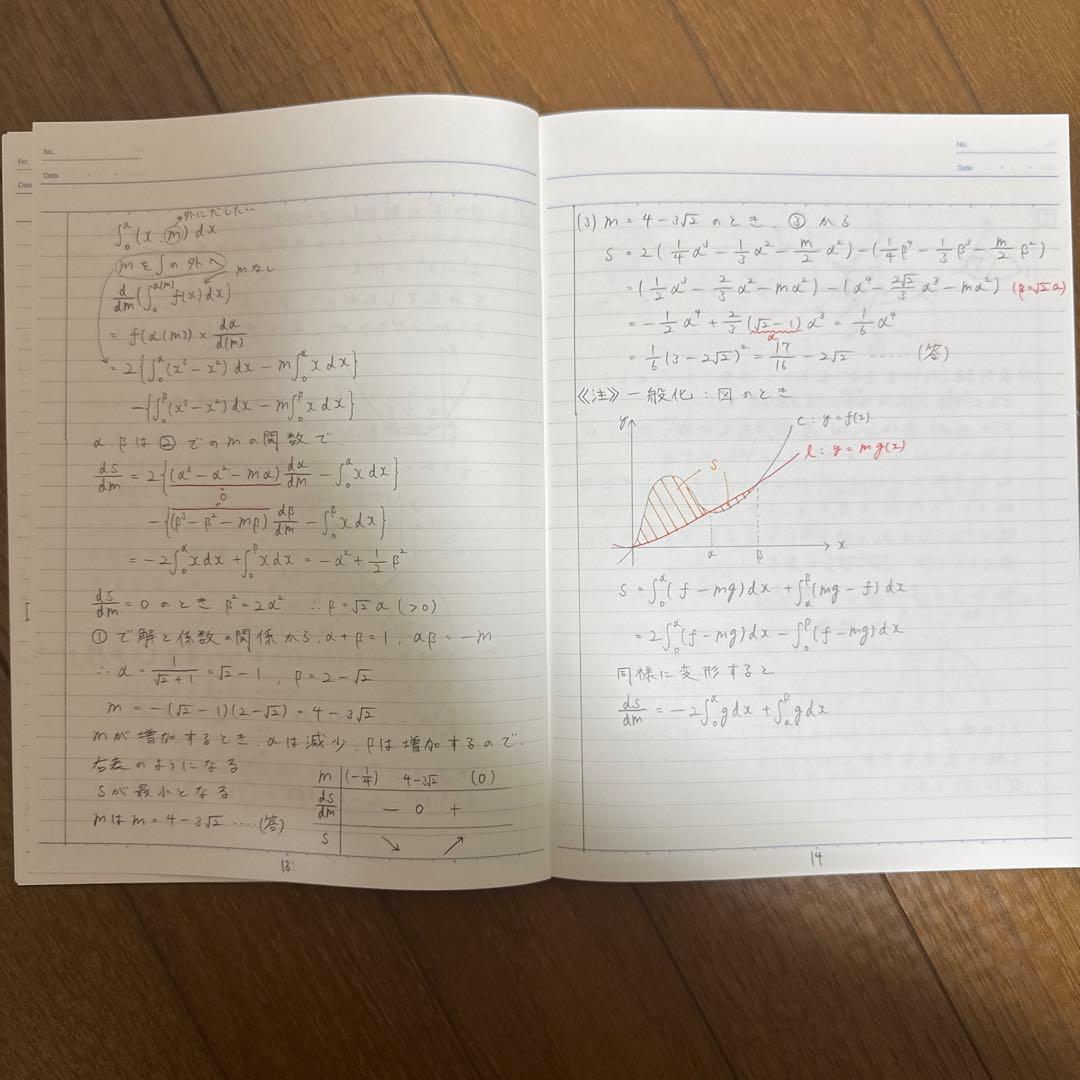 No.
Date
No.
Date
外にだしたい
∫₀^α (x m) dx
mを∫の外へ
mなし
d/dm (∫₀^α(m) f(x) dx)
= f(α(m)) × dα/d(m)
= 2{∫₀^α (x³ - x²) dx - m∫₀^α x dx}
-{∫₀^β (x³ - x²) dx - m∫₀^β x dx}
α.βは②でのmの関数で.
dS/dm = 2{(α³ - α² - mα) dα/dm - ∫₀^α x dx}
0
-{(β³ - β² - mβ) dβ/dm - ∫₀^β x dx}
= -2∫₀^α x dx + ∫₀^β x dx = -α² + 1/2 β²
dS/dm = 0 のとき β² = 2α² ∴ β = √2 α (>0)
①で解と係数の関係から. α + β = 1, αβ = -m
∴ α = 1/(√2+1) = √2 - 1, β = 2 - √2
m = -(√2 - 1)(2 - √2) = 4 - 3√2
mが増加するとき.αは減少.βは増加するので.
右表のようになる
Sが最小となる
mは m = 4 - 3√2 ……(答)
m (-1/4) 4-3√2 (0)
dS/dm - 0 +
S ↘ ↗
13
No.
Date
(3) m = 4 - 3√2 のとき. ③から
S = 2(1/4 α³ - 1/3 α² - m/2 α²) - (1/4 β⁴ - 1/3 β³ - m/2 β²)
= (1/2 α³ - 2/3 α² - mα²) - (α⁴ - 2√2/3 α³ - mα²) (β=√2α)
= -1/2 α⁴ + 2/3 (√2 - 1) α³ = 1/6 α⁴
α
= 1/6 (3 - 2√2)² = 17/16 - 2√2 ……(答)
《注》一般化:図のとき
y
C: y = f(x)
l: y = m g(x)
S
α β x
S = ∫₀^α (f - mg) dx + ∫α^β (mg - f) dx
= 2∫₀^α (f - mg) dx - ∫₀^β (f - mg) dx
同様に変形すると
dS/dm = -2∫₀^α g dx + ∫α^β g dx
14